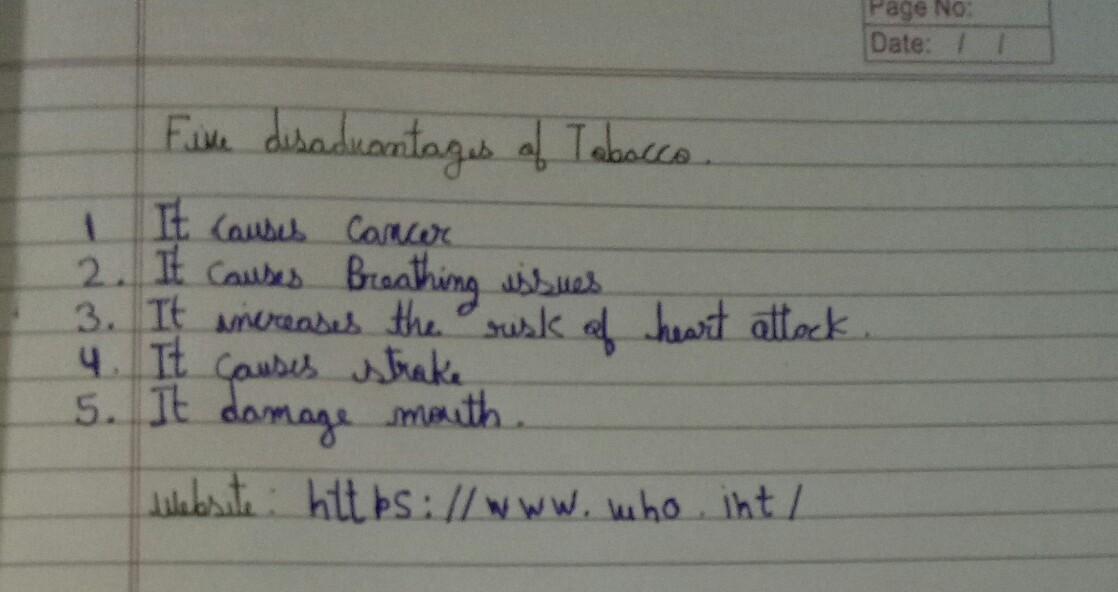 Page No:
Date: / /
Five disadvantages of Tobacco.
1 It causes Cancer
2. It causes Breathing issues
3. It increases the risk of heart attack.
4. It causes stroke
5. It damage mouth.
website: https://www.who.int/